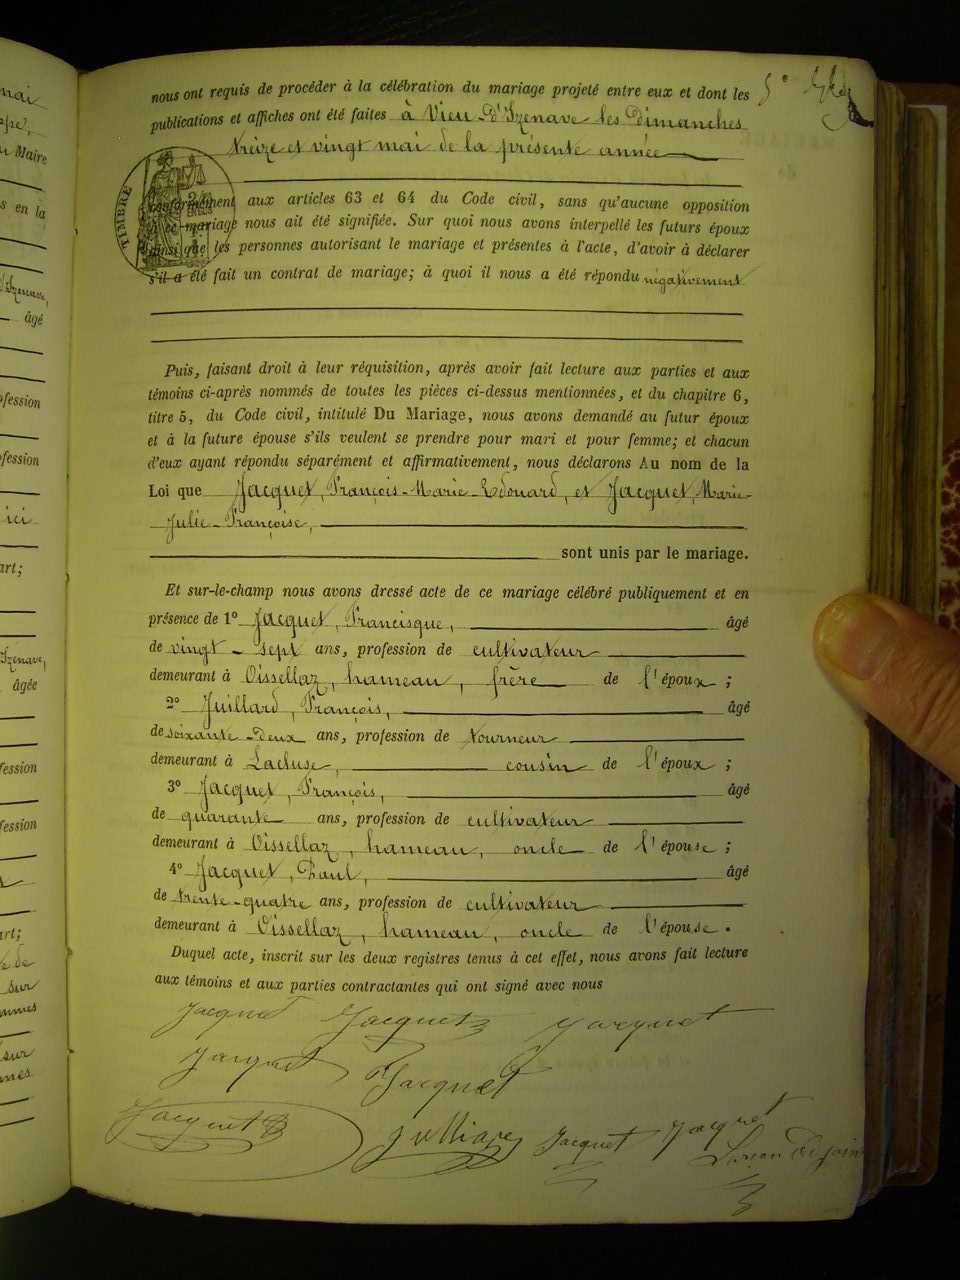 nai
5e
nous ont requis de procéder à la célébration du mariage projeté entre eux et dont les
publications et affiches ont été faites à Vieu-d'Izenave les Dimanches
treize et vingt mai de la présente année
TIMBRE
conformément aux articles 63 et 64 du Code civil, sans qu'aucune opposition
à ce mariage nous ait été signifiée. Sur quoi nous avons interpellé les futurs époux
ainsi que les personnes autorisant le mariage et présentes à l'acte, d'avoir à déclarer
s'il a été fait un contrat de mariage; à quoi il nous a été répondu négativement
Puis, faisant droit à leur réquisition, après avoir fait lecture aux parties et aux
témoins ci-après nommés de toutes les pièces ci-dessus mentionnées, et du chapitre 6,
titre 5, du Code civil, intitulé Du Mariage, nous avons demandé au futur époux
et à la future épouse s'ils veulent se prendre pour mari et pour femme; et chacun
d'eux ayant répondu séparément et affirmativement, nous déclarons Au nom de la
Loi que Jacquet, François-Marie-Edouard, et Jacquet, Marie-
Julie-Françoise,
sont unis par le mariage.
Et sur-le-champ nous avons dressé acte de ce mariage célébré publiquement et en
présence de 1° Jacquet, Francisque, âgé
de vingt-sept ans, profession de cultivateur
demeurant à Oissellaz, hameau, frère de l'époux ;
2° Juillard, François, âgé
de soixante-deux ans, profession de tourneur
demeurant à Lacluse, cousin de l'époux ;
3° Jacquet, François, âgé
de quarante ans, profession de cultivateur
demeurant à Oissellaz, hameau, oncle de l'épouse ;
4° Jacquet, Paul, âgé
de trente-quatre ans, profession de cultivateur
demeurant à Oissellaz, hameau, oncle de l'épouse.
Duquel acte, inscrit sur les deux registres tenus à cet effet, nous avons fait lecture
aux témoins et aux parties contractantes qui ont signé avec nous
Jacquet Jacquet Jacquet
Jacquet Jacquet
Jacquet Julliard Jacquet Jacquet